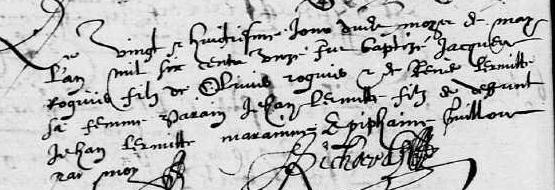 Le vingt & huictiesme Jour dudt moys de may
L'an mil six cents unze fut baptizé Jacques
Roguis filz de Ollivier roguis & de Renée Lermitte
sa femme Parain Jehan Lermitte filz de deffunt
Jehan Lermitte maraine Epiphaine Guillou
par moy
Richard